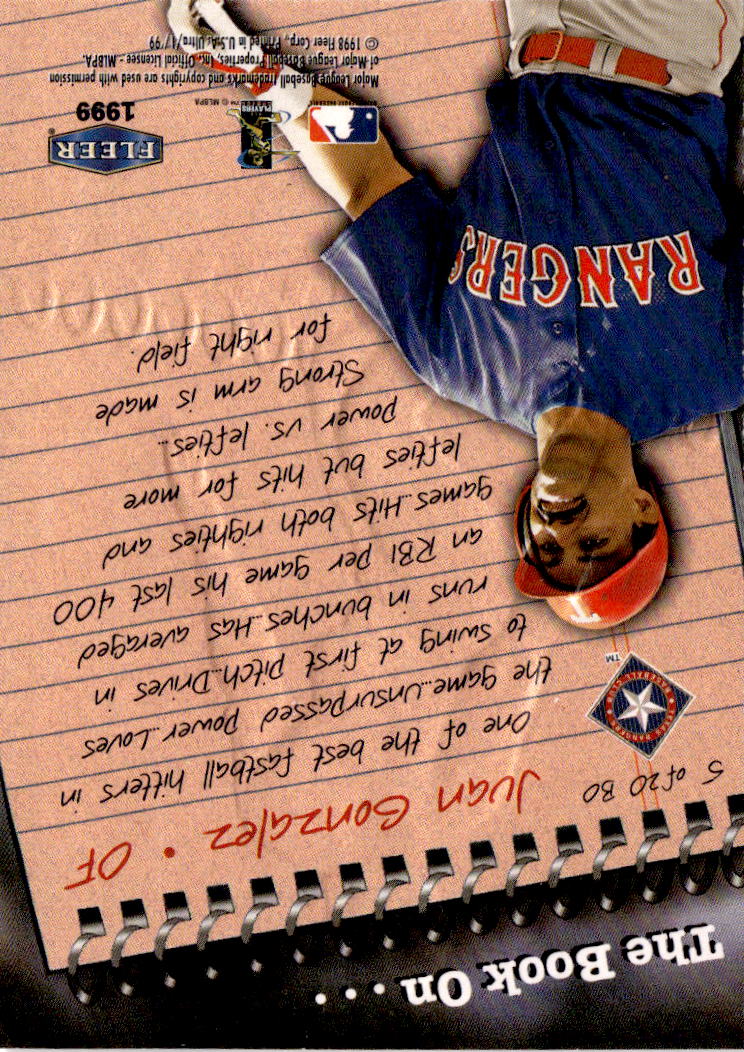 The Book On . . .
5 of 20 BO
Juan Gonzalez • OF
One of the best fastball hitters in
the game...Unsurpassed power...Loves
to swing at first pitch...Drives in
runs in bunches...Has averaged
an RBI per game his last 400
games...Hits both righties and
lefties but hits for more
power vs. lefties...
Strong arm is made
for right field.
T
RANGERS
TEXAS RANGERS
BASEBALL CLUB
TM
FLEER®
1999
PLAYERS
© MLBPA
Major League Baseball trademarks and copyrights are used with permission
of Major League Baseball Properties, Inc. Official Licensee - MLBPA.
© 1998 Fleer Corp., Printed in U.S.A. Ultra/1/'99